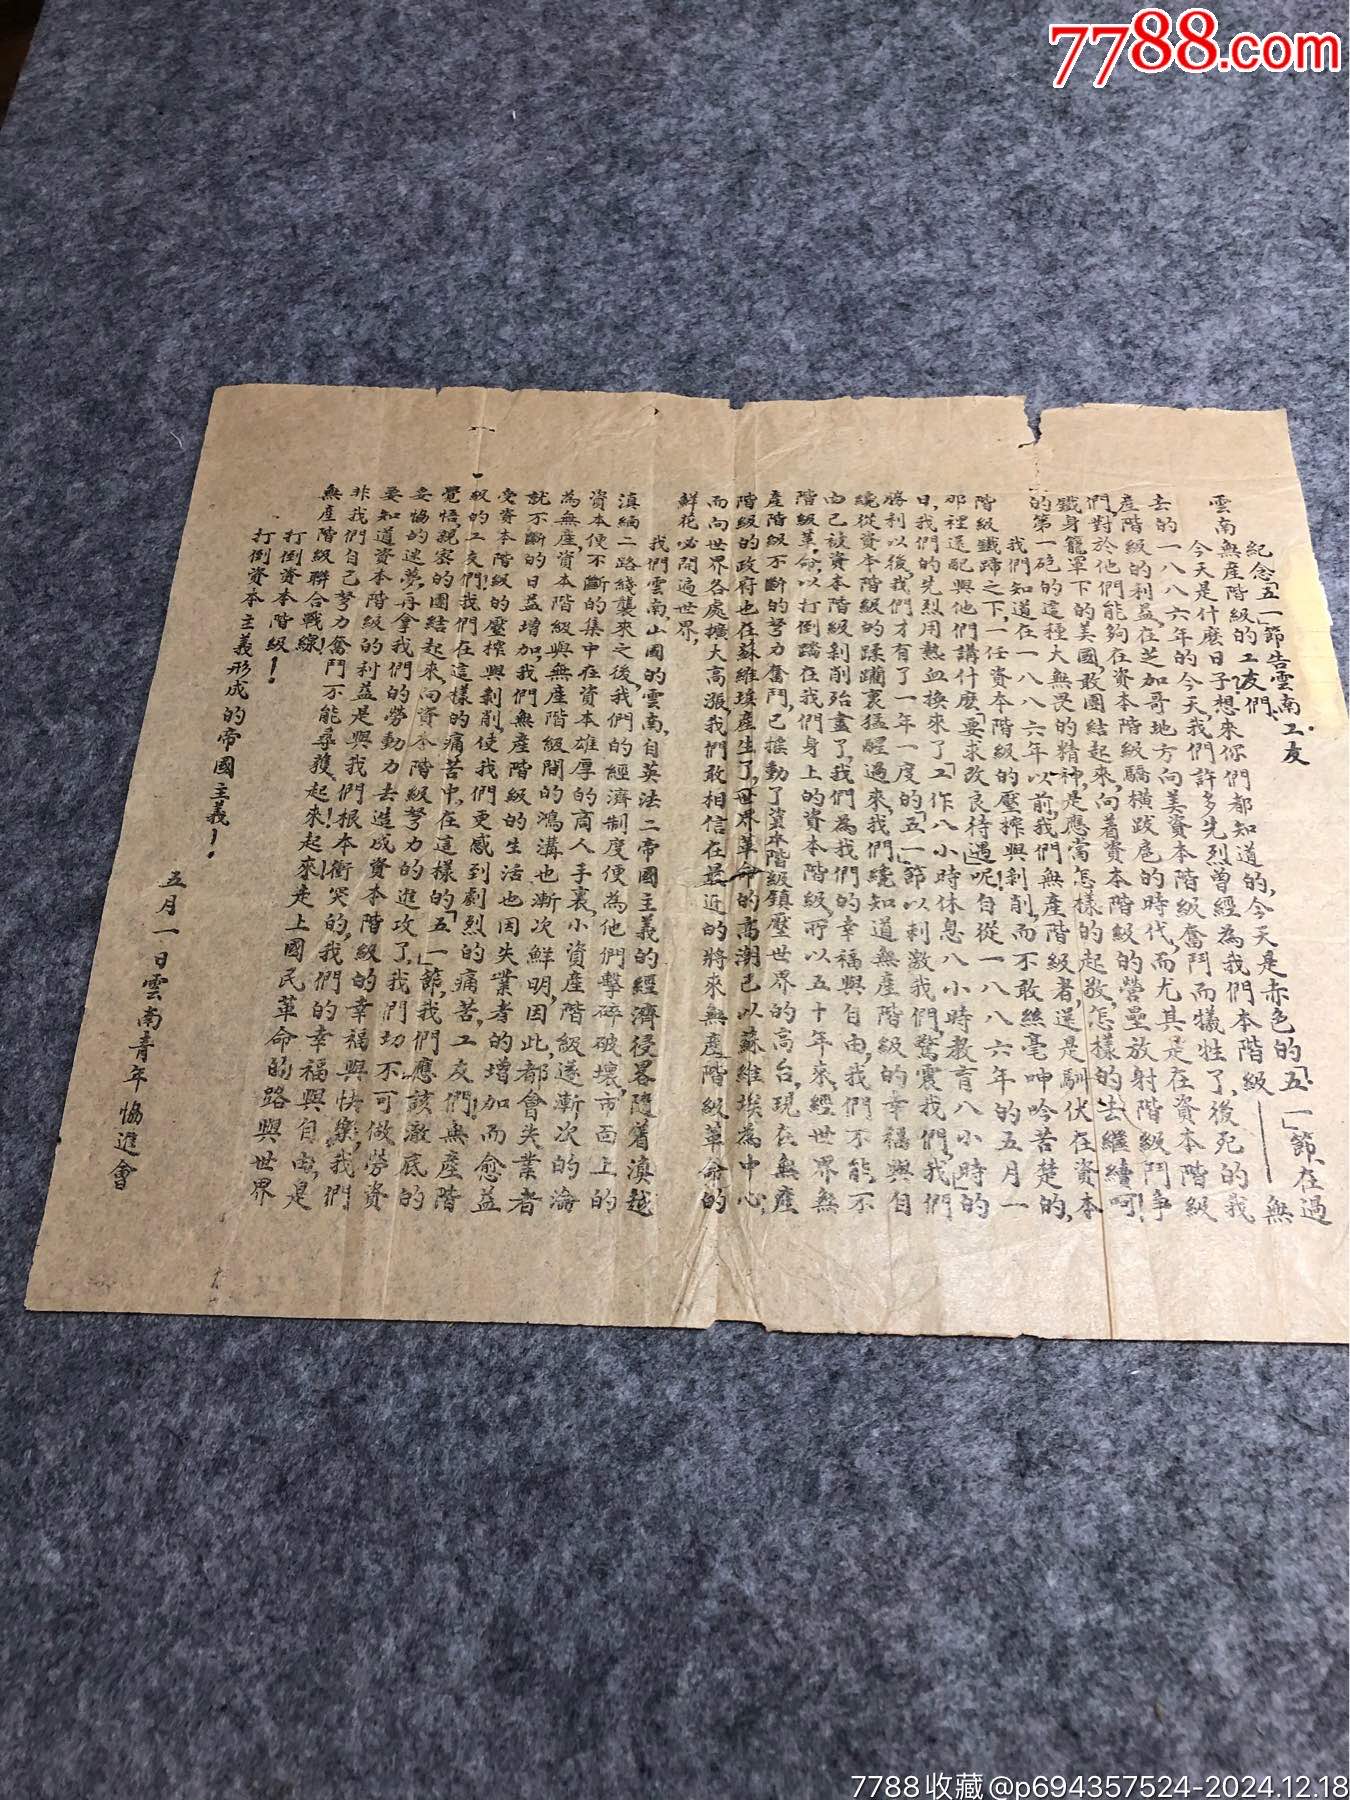 7788.com
紀念「五一」節告雲南工友
雲南無產階級的工友們、
今天是什麼日子想來你們都知道的,今天是赤色的「五一」節、在過
去的一八八六年的今天,我們許多先烈曾經為我們本階級——無
產階級的利益,在芝加哥地方向美資本階級奮鬥而犧牲了,後死的我
們,對於他們能夠在資本階級驕橫跋扈的時代,而尤其是在資本階級
鐵身籠罩下的美國,敢團結起來,向着資本階級的營壘放射階級鬥爭
的第一砲的這種大無畏的精神,是應當怎樣的起敬,怎樣的去繼續呵!
我們知道在一八八六年以前,我們無產階級者,還是馴伏在資本
階級鐵蹄之下,一任資本階級的壓搾與剝削,而不敢絲毫呻吟苦楚的,
那裡還配與他們講什麼「要求改良待遇」呢!自從一八八六年的五月一
日,我們的先烈用熱血換來了「工作八小時休息八小時教育八小時」的
勝利以後,我們才有了一年一度的「五一」節以刺激我們,驚震我們,我們
纔從資本階級的蹂躪裏猛醒過來,我們纔知道無產階級的幸福與自
由已被資本階級剝削殆盡了,我們為我們的幸福與自由,我們不能不
階級革命,以打倒踏在我們身上的資本階級,所以五十年來,經世界無
產階級不斷的努力奮鬥,已搖動了資本階級鎮壓世界的高台,現在無產
階級的政府也在蘇維埃產生了,世界革命的高潮已以蘇維埃為中心,
而向世界各處擴大高漲,我們敢相信在最近的將來無產階級革命的
鮮花必開遍世界,
我們雲南,山國的雲南,自英法二帝國主義的經濟侵畧隨着滇越
滇緬二路綫襲來之後,我們的經濟制度便為他們擊碎破壞,市面上的
資本便不斷的集中在資本雄厚的商人手裏,小資產階級遂漸次的淪
為無產,資本階級與無產階級間的鴻溝也漸次鮮明,因此,都會失業者
就不斷的日益增加,我們無產階級的生活也因失業者的增加而愈益
受資本階級的壓搾與剝削,使我們更感到劇烈的痛苦,工友們!無產階
級的工友們!我們在這樣的痛苦中,在這樣的「五一」節,我們應該澈底的
覺悟,親密的團結起來,向資本階級努力的進攻了,我們切不可做勞資
妥協的迷夢,再拿我們的勞動力去造成資本階級的幸福與快樂,我們
要知道資本階級的利益是與我們根本衝突的,我們的幸福與自由,是
非我們自己努力奮鬥不能尋獲!起來!起來走上國民革命的路與世界
無產階級聯合戰線!
打倒資本階級!
打倒資本主義形成的帝國主義!
五月一日雲南青年協進會
7788收藏@p694357524-2024.12.18